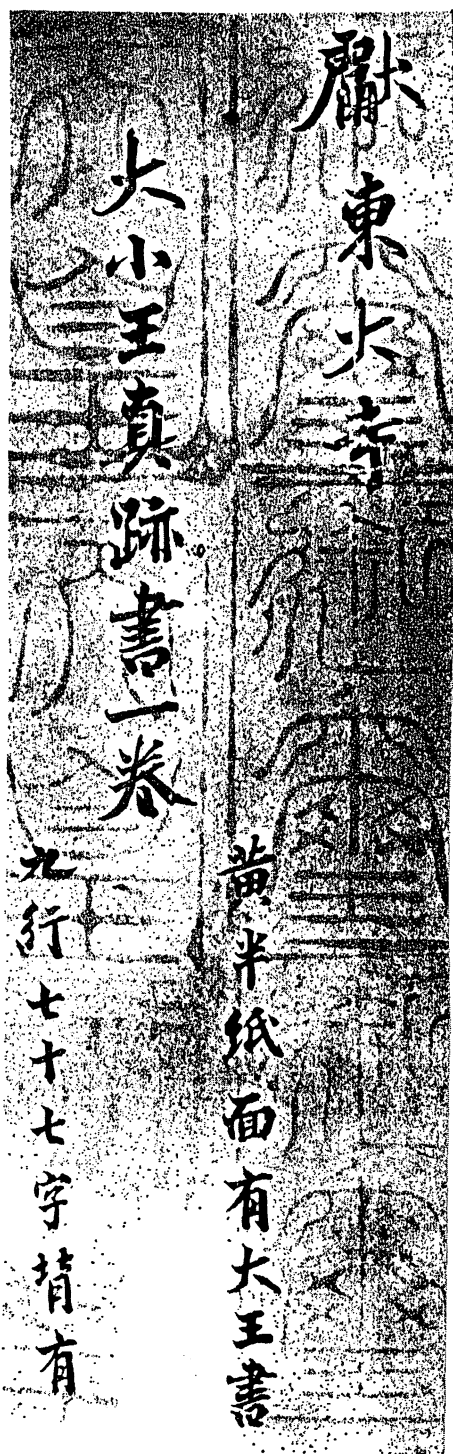 獻東大寺
大小王真跡書一卷
黄半紙面有大王書
九行七十七字背有